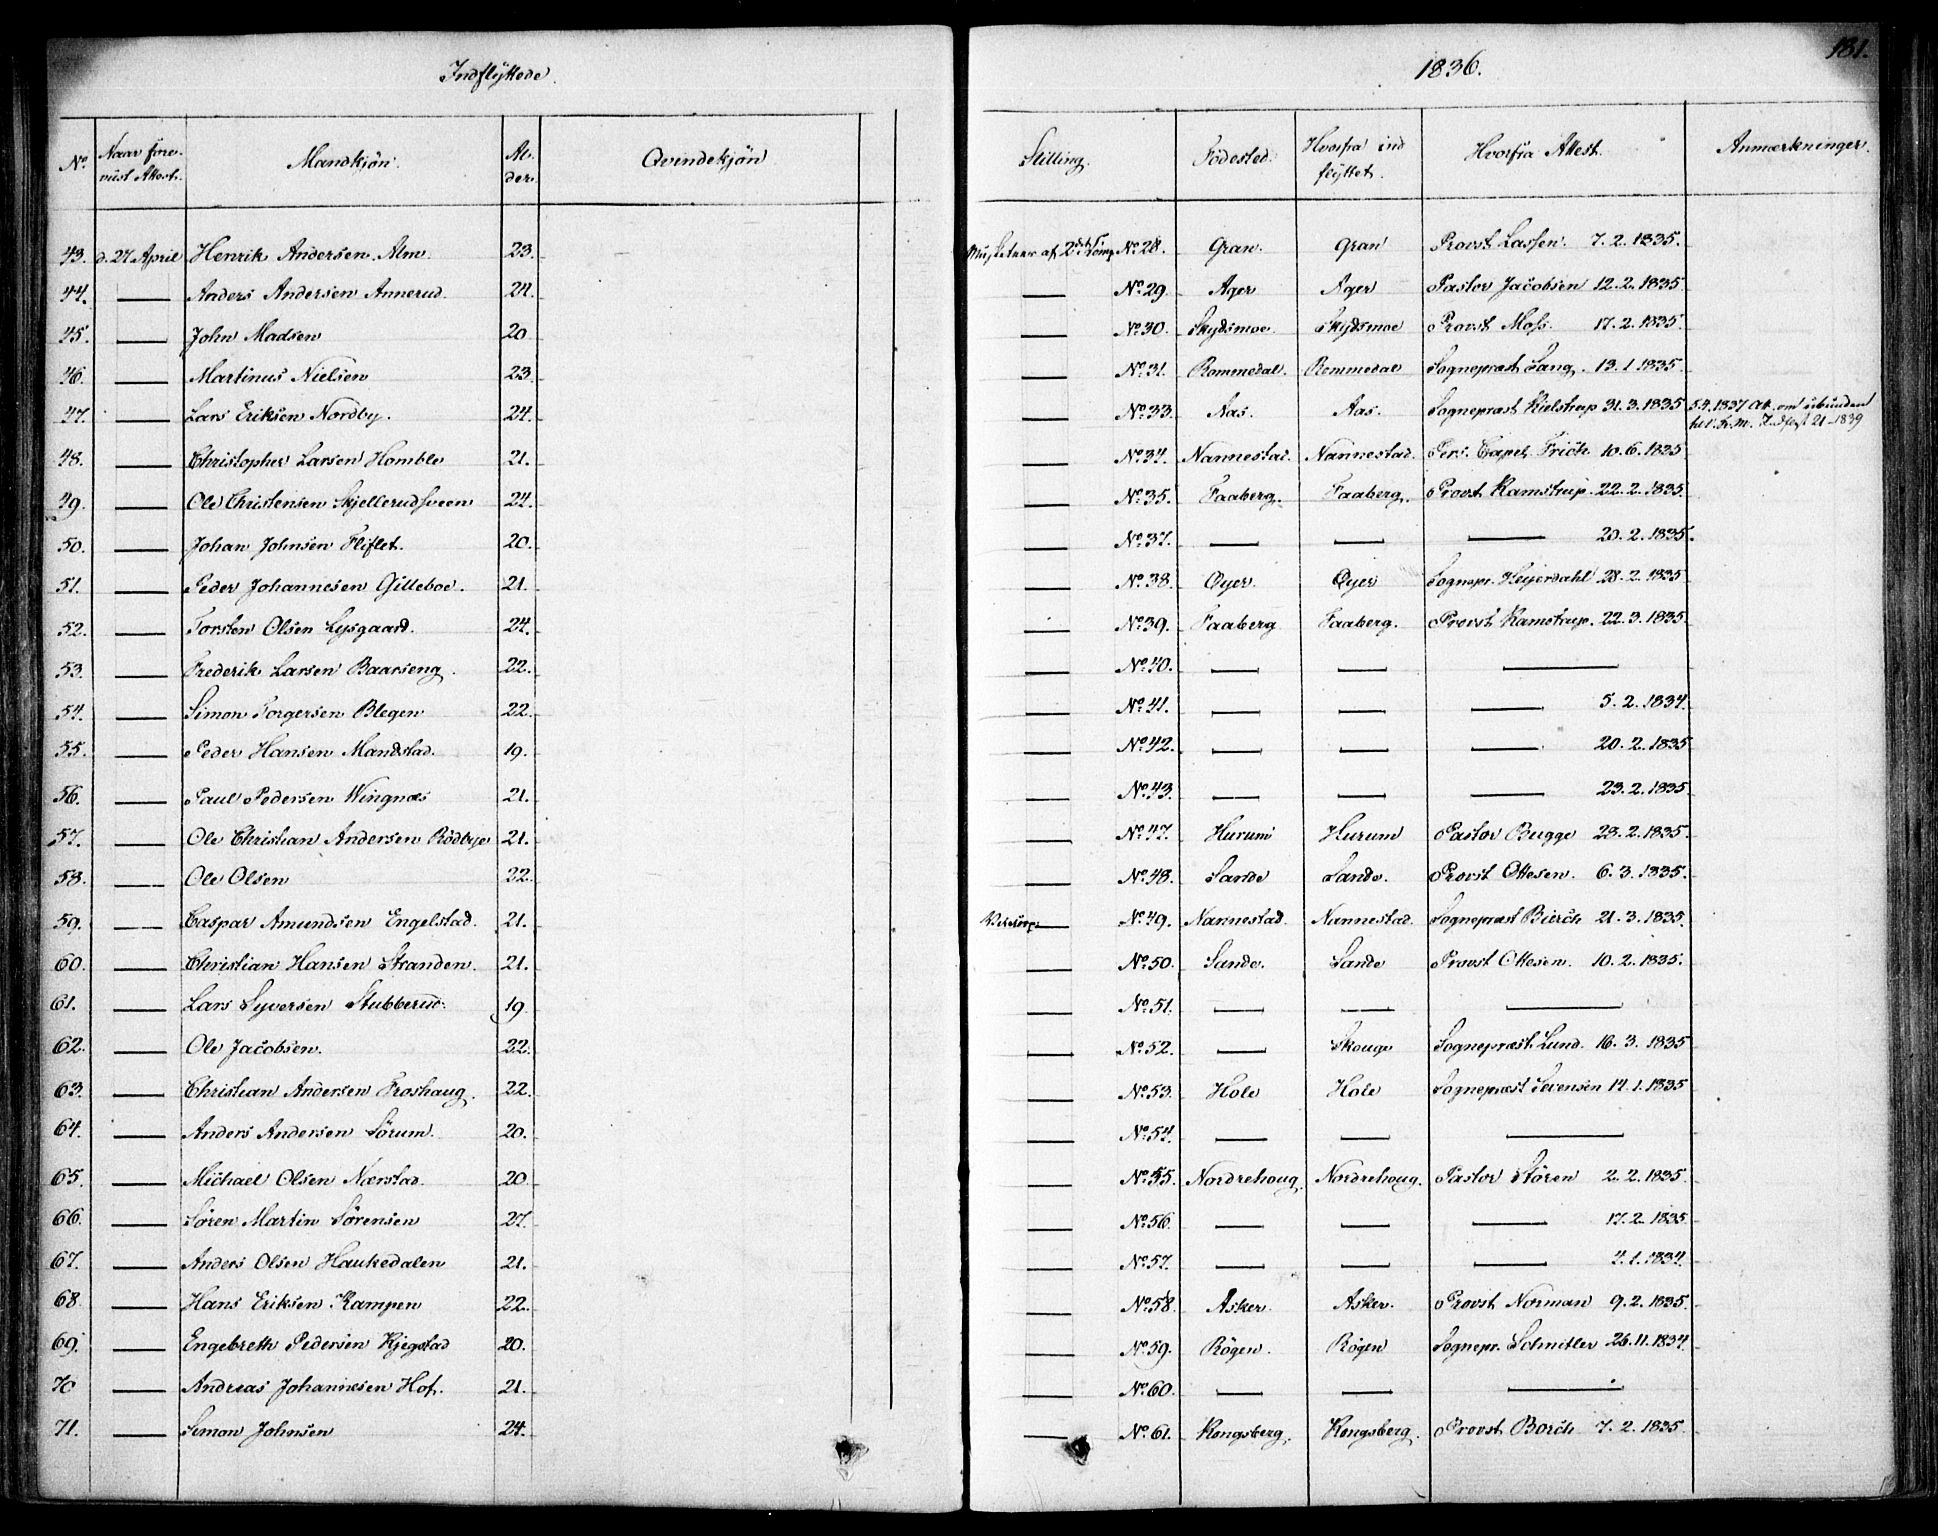 Indflyttede. 1836. 181.
No. Naar fore- Mandkjøn. Al- Qvindekjøn Stilling. Födested. Hvorfra ind Hvorfra Attest. Anmærkninger.
viist Attest. der. flyttet.
43. d. 27 April Henrik Andersen Alm 23. af 2det No. 28. Gran. Gran Provst Lassen. 7. 2. 1835.
44. — Anders Andersen Annerud. 24. — No. 29. Ager Ager Pastor Jacobsen 12. 2. 1835.
45. — John Madsen 20 — No. 30. Skydsmoe. Skydsmoe Provst Moss. 17. 2. 1835.
46. — Martinus Nielsen 23. — No. 31. Rommedal. Rommedal Sognepræst Lang. 13. 1. 1835.
47. — Lars Eriksen Nordby. 24. — No. 33. Aas. Aas. Sognepræst Kielstrup 31. 3. 1835 5.4.1837 At. om ubunden
til 1839
48. — Christopher Larsen Homble 21. — No. 34. Nannestad. Nannestad. Pers. Capel. Frich 10. 6. 1835
49. — Ole Christensen Skjellerudsveen 24. — No. 35. Faaberg. Faaberg. Provst Ramstrup. 22. 2. 1835.
50. — Johan Johnsen Fliflet. 20. — No. 37. — — — 20. 2. 1835.
51. — Peder Johannesen Gilleboe. 21. — No. 38. Øyer. Øyer Sognepr. Heyerdahl 28. 2. 1835
52. — Torsten Olsen Lysgaard. 24. — No. 39. Faaberg Faaberg. Provst Ramstrup. 22. 3. 1835.
53. — Frederik Larsen Baarseng. 22. — No. 40. — — —
54. — Simon Torgersen Blegen 22. — No. 41. — — — 5. 2. 1834.
55. — Peder Hansen Mandstad. 19. — No. 42. — — — 20. 2. 1835
56. — Paul Pedersen Wingnæs 21. — No. 43. — — — 23. 2. 1835.
57. — Ole Christian Andersen Rödbye 21. — No. 47. Hurum Hurum Pastor Bugge 23. 2. 1835.
58. — Ole Olsen 22. — No. 48. Sande Sande. Provst Ottesen. 6. 3. 1835.
59. — Caspar Amundsen Engelstad. 21. — No. 49. Nannestad. Nannestad. Sognepræst Bierch 21. 3. 1835.
60. — Christian Hansen Stranden. 21. — No. 50. Sande. Sande Provst Ottesen. 10. 2. 1835.
61. — Lars Syversen Stubberud. 19. — No. 51. — — —
62. — Ole Jacobsen. 22. — No. 52. — Skouge Sognepræst Lund. 16. 3. 1835
63. — Christian Andersen Froshaug. 22. — No. 53. Hole Hole Sognepræst Sevensen 14. 1. 1835
64. — Anders Andersen Sörum. 20. — No. 54. — — —
65. — Michael Olsen Nærstad. 20 — No. 55. Nordrehoug. Nordrehoug. Pastor Stören 2. 2. 1835.
66. — Sören Martin Sörensen 27. — No. 56. — — — 17. 2. 1835
67. — Anders Olsen Haukedalen 21. — No. 57. — — — 4. 1. 1834.
68 — Hans Eriksen Kampen 22. — No. 58. Asker. Asker. Provst Norman 9. 2. 1835.
69. — Engebreth Pedersen Kjegstad 20. — No. 59. Rögen. Rögen Sognepr. Schnitler 26. 11. 1834.
70 — Andreas Johannesen Hof. 21. — No. 60. — — —
71. — Simon Johnsen 24. — No. 61. Kongsberg. Kongsberg. Provst Borch 7. 2. 1835.